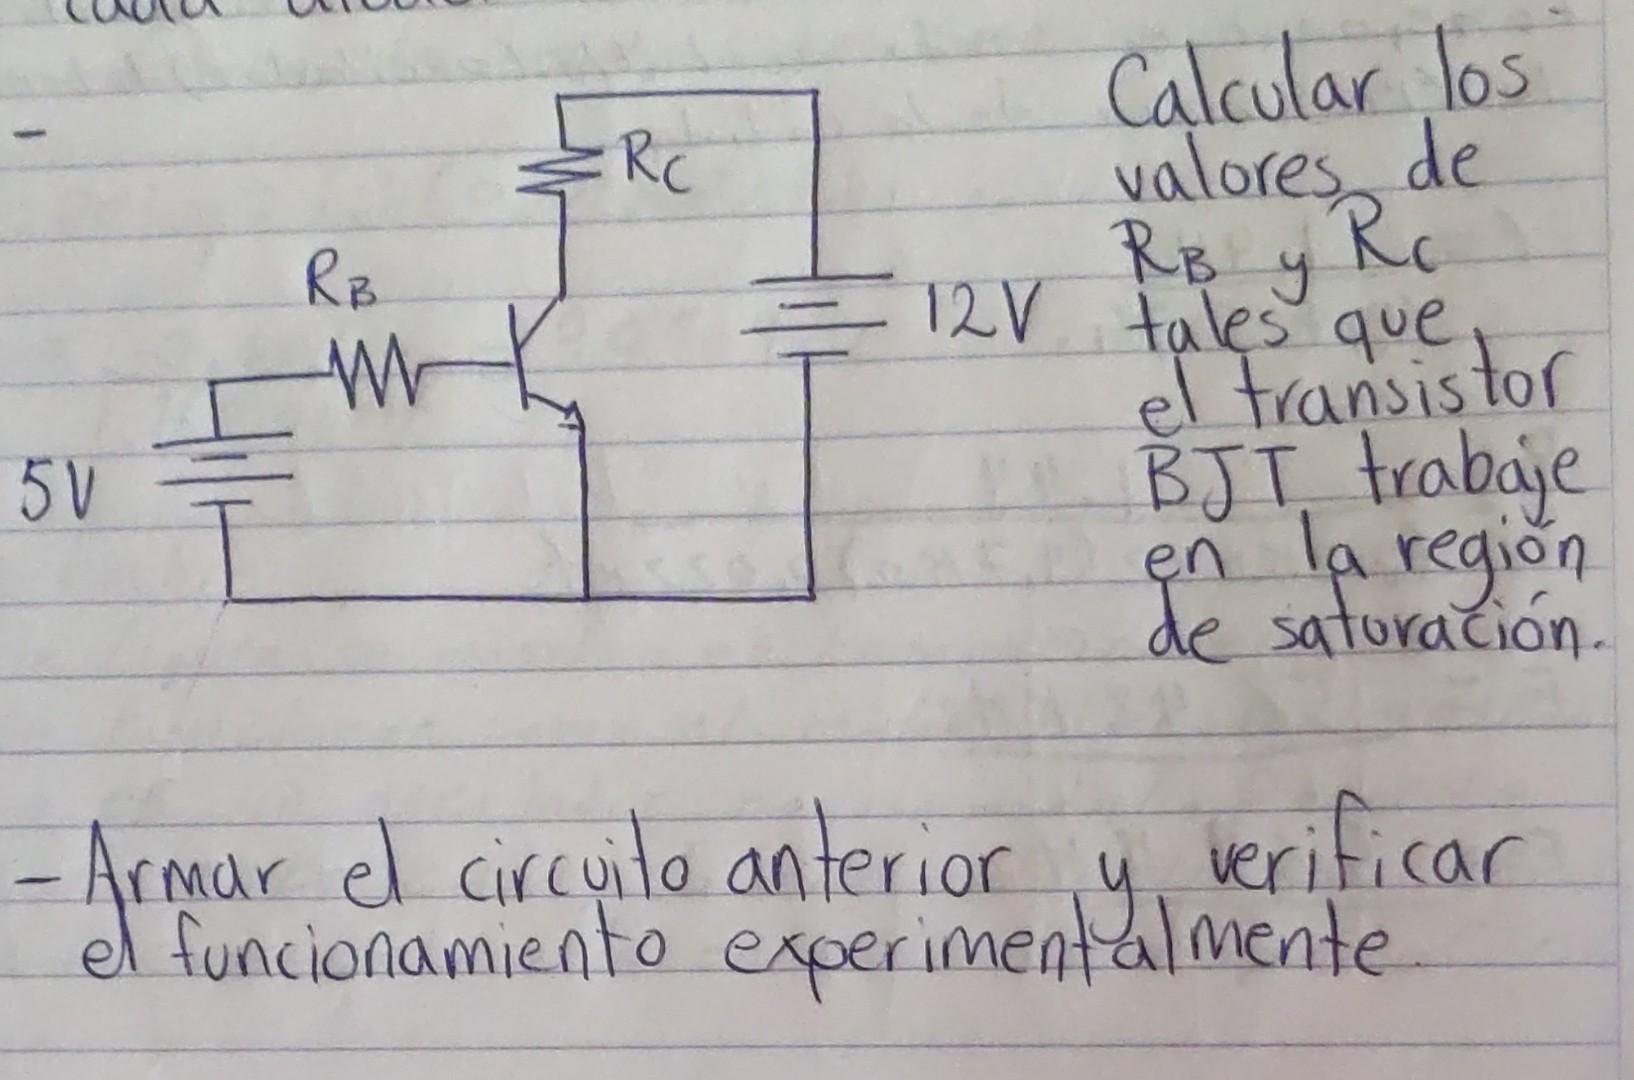 -
RC
RB
12V
5V
Calcular los
valores de
RB y RC
tales que
el transistor
BJT trabaje
en la región
de saturación.
- Armar el circuito anterior y verificar
el funcionamiento experimentalmente.